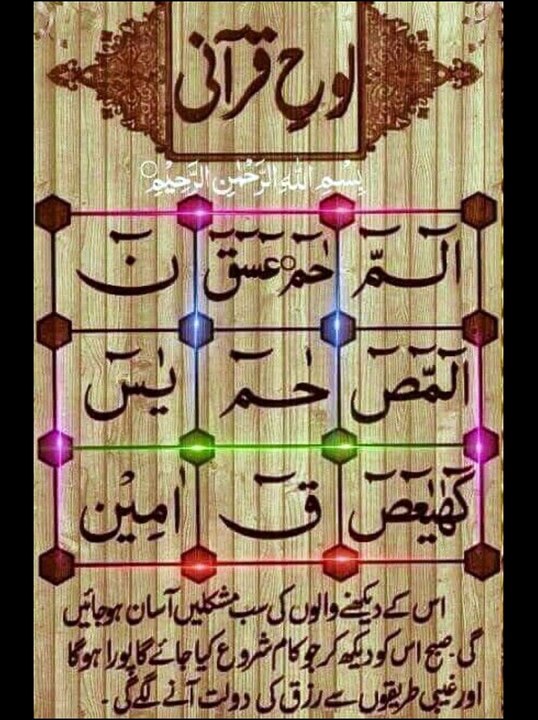 لوح قرآنی
بِسْمِ اللّٰہِ الرَّحْمٰنِ الرَّحِیْمِ
الٓمّٓ حٰمٓ عٓسٓقٓ نٓ
الٓمّٓصٓ حٰمٓ یٰسٓ
کٓھٰیٰعٓصٓ قٓ اٰمِیْن
اس کے دیکھنے والوں کی سب مشکلیں آسان ہوجائیں
گی۔ صبح اس کو دیکھ کر جو کام شروع کیا جائے گا پورا ہوگا
اور غیبی طریقوں سے رزق کی دولت آنے لگے گی۔